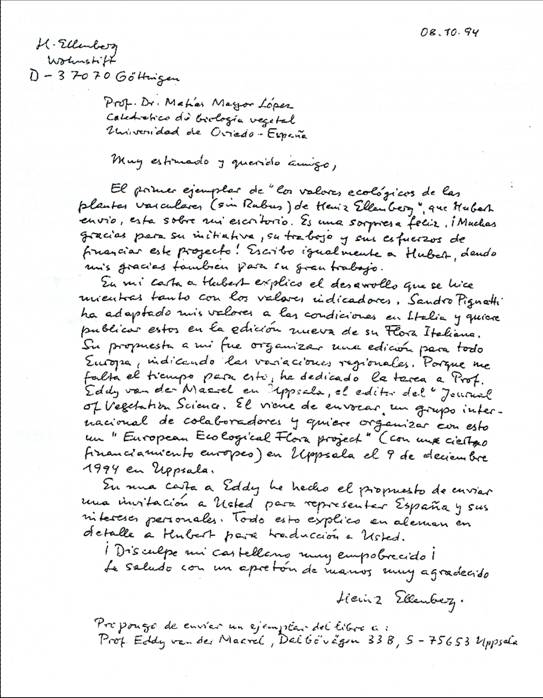 08.10.94
H. Ellenberg
Wohnstift
D-37070 Göttingen
Prof. Dr. Matías Mayor López
Catedratico de biología vegetal
Universidad de Oviedo - España
Muy estimado y querido amigo,
El primer ejemplar de "los valores ecológicos de las
plantas vasculares (sin Rubus) de Heinz Ellenberg", que Hubert
envio, esta sobre mi escritorio. Es una sorpresa feliz. ¡Muchas
gracias para su initiative, su trabajo y sus esfuerzos de
financiar este projecto! Escribo igualmente a Hubert, dando
mis gracias tambien para su gran trabajo.
En mi carta a Hubert explico el desarollo que se hice
mientras tanto con los valores indicadores. Sandro Pignatti
ha adaptado mis valores a las condiciones en Italia y quiere
publicar estos en la edición nueva de su Flora Italiana.
Su propuesta a mi fue organizar una edición para todo
Europa, indicando las variaciones regionales. Porque me
falta el tiempo para esti, ha dedicado la tarea a Prof.
Eddy van der Maarel en Uppsala, el editor del "Journal
of Vegetation Science. El viene de envocar un grupo inter-
nacional de colaboradores y quiere organizar con esto
un "European Ecological Flora project" (con una cierto
financiamiento europeo) en Uppsala el 9 de deciembre
1994 en Uppsala.
En una carta a Eddy he hecho el propuesto de enviar
una invitación a Usted para representar España y sus
intereses personales. Todo esto explico en aleman en
detalle a Hubert para traducción a Usted.
¡Disculpe mi castellano muy empobrecido¡
Le saludo con un apretón de manos muy agradecido
Heinz Ellenberg.
Propongo de enviar un ejemplar del libro a:
Prof Eddy van der Maarel, Dalbövägen 33B, S-75653 Uppsala